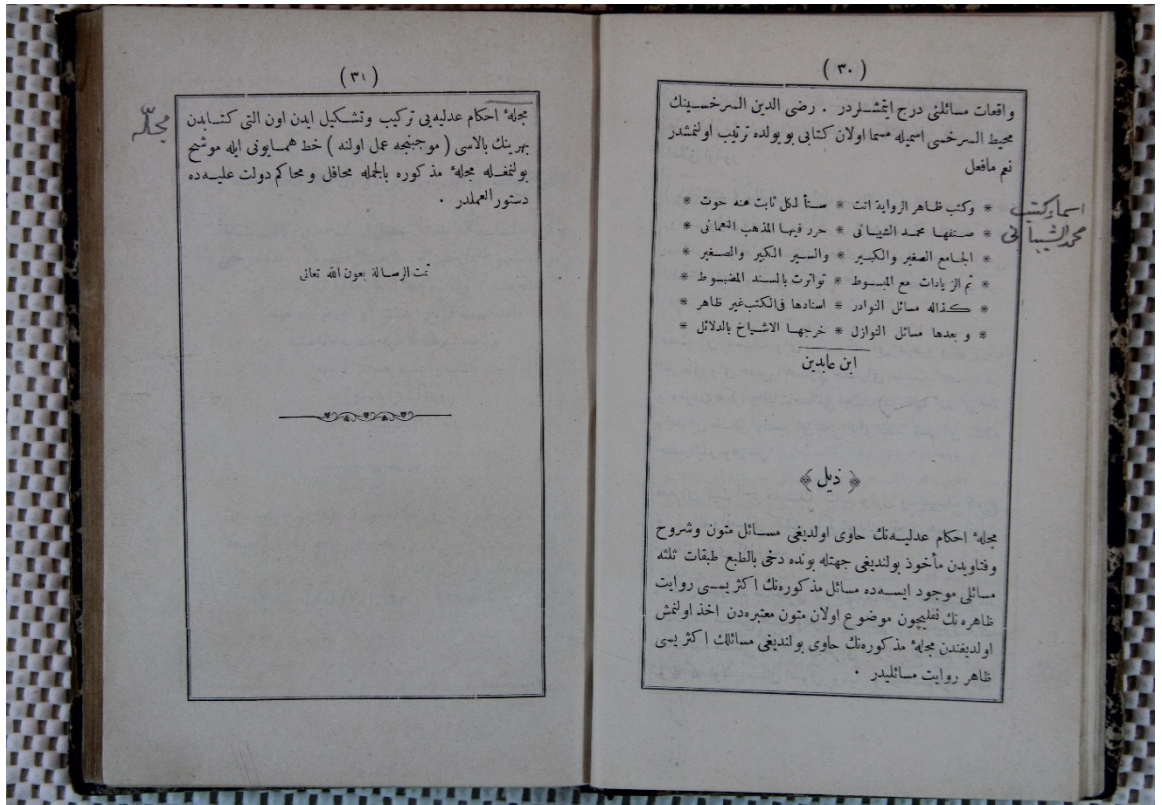 ( ٣٠ )
واقعات مسائلنى درج ايتمشلردر . رضى الدين السرخسينك
محيط السرخسى اسميله مسما اولان كتابى بو يولده ترتيب اولنمشدر
نعم مافعل
* وكتب ظاهر الرواية اتت * ستأ لكل ثابت عنه حوت *
* صنفها محمد الشيبانى * حرر فيها المذهب النعمانى *
* الجامع الصغير والكبير * والسير الكبير والصغير *
* ثم الزيادات مع المبسوط * تواترت بالسند المضبوط *
* كذاله مسائل النوادر * اسنادها فى الكتب غير ظاهر *
* و بعدها مسائل النوازل * خرجها الاشياخ بالدلائل *
ابن عابدين
اسماء كتب
محمد الشيبانى
﴿ ذيل ﴾
مجلهٔ احكام عدليه‌نك حاوى اولديغى مسائل متون وشروح
وفتاويدن مأخوذ بولنديغى جهتله بونده دخى بالطبع طبقات ثلثه
مسائلى موجود ايسه‌ده مسائل مذكوره‌نك اكثريسى روايت
ظاهره نك نقليچون موضوع اولان متون معتبره‌دن اخذ اولنمش
اولديغندن مجلهٔ مذكوره‌نك حاوى بولنديغى مسائلك اكثريسى
ظاهر روايت مسائليدر .
( ٣١ )
مجلهٔ احكام عدليه‌يى تركيب وتشكيل ايدن اون التى كتابدن
بهرينك بالاسى ( موجبنجه عمل اولنه ) خط همايونى ايله موشح
بولنمغله مجلهٔ مذكوره بالجمله محافل ومحاكم دولت عليه‌ده
دستور العملدر .
مجلّه
تمت الرسالة بعون الله تعالى